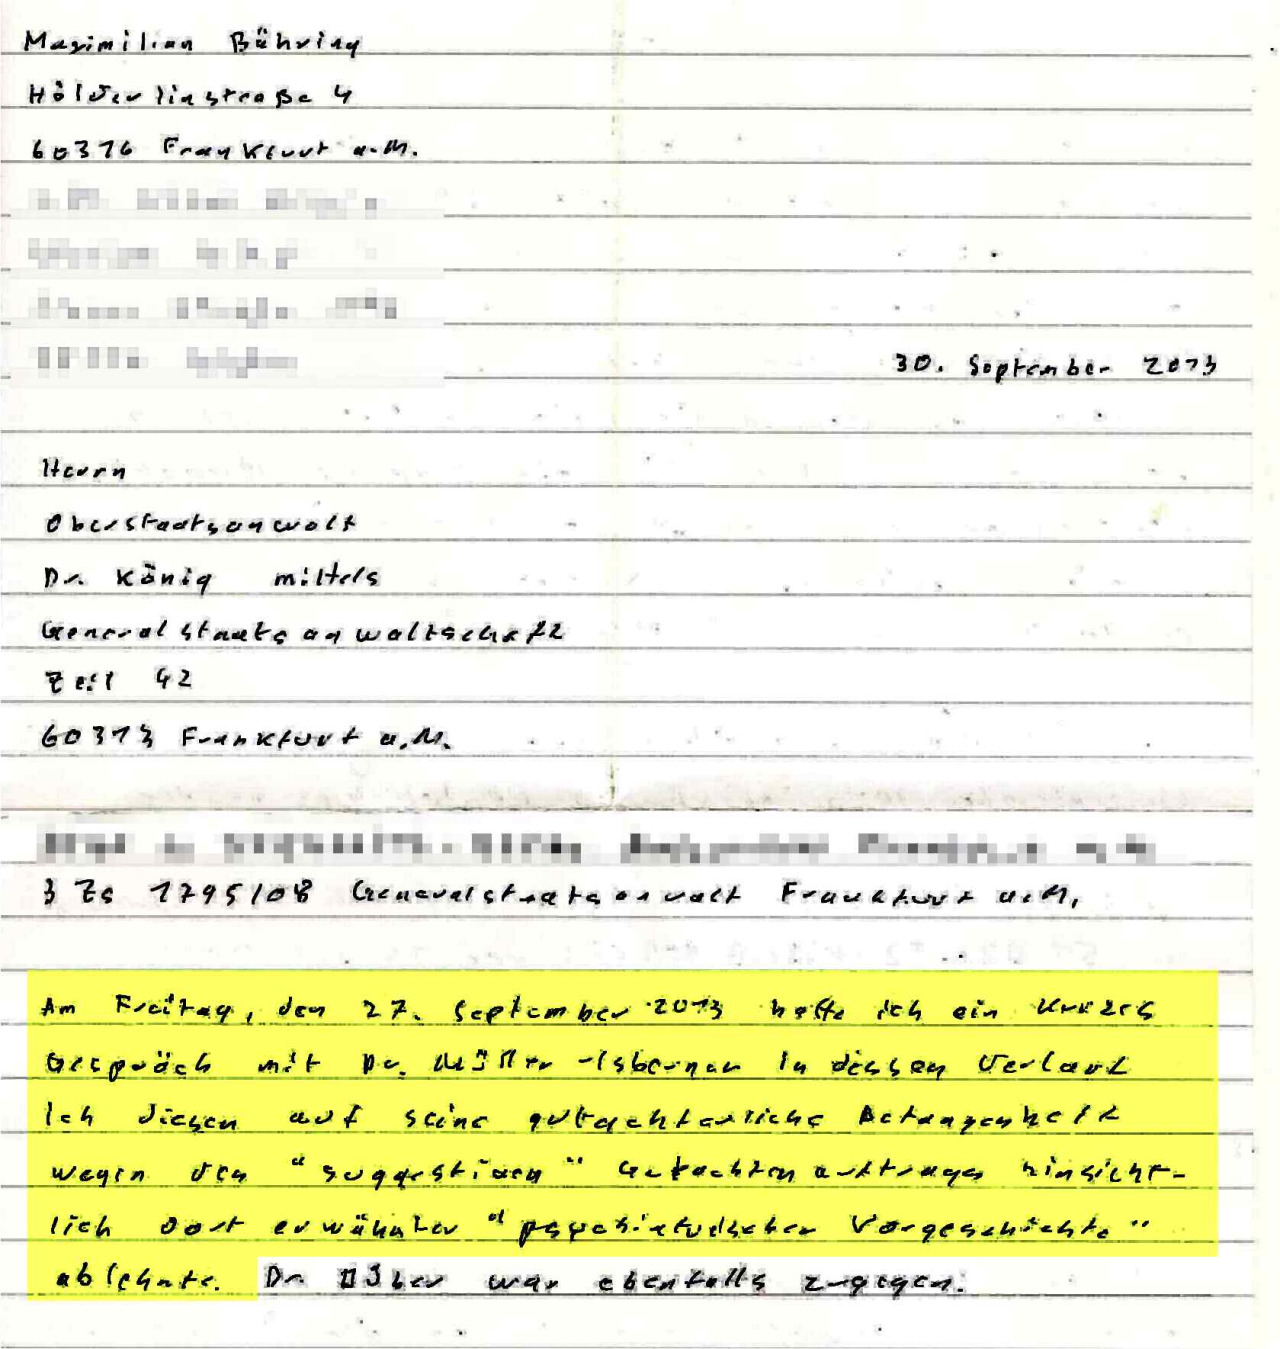 Maximilian Bähring
Hölderlinstraße 4
60316 Frankfurt a.M.
30. September 2013
Herrn
Oberstaatsanwalt
Dr. König mittels
Generalstaatsanwaltschaft
Zeil 42
60313 Frankfurt a.M.
3 Zs 1795/08 Generalstaatsanwalt Frankfurt a.M.
Am Freitag, den 27. September 2013 hatte ich ein kurzes
Gespräch mit Dr. Müller-Isberner in dessen Verlauf
ich diesen auf seine gutachterliche Befangenheit
wegen des "suggestiven" Gutachtenauftrages hinsicht-
lich dort erwähnter "psychiatrischer Vorgeschichte"
ablehnte. Dr. war ebenfalls zugegen.